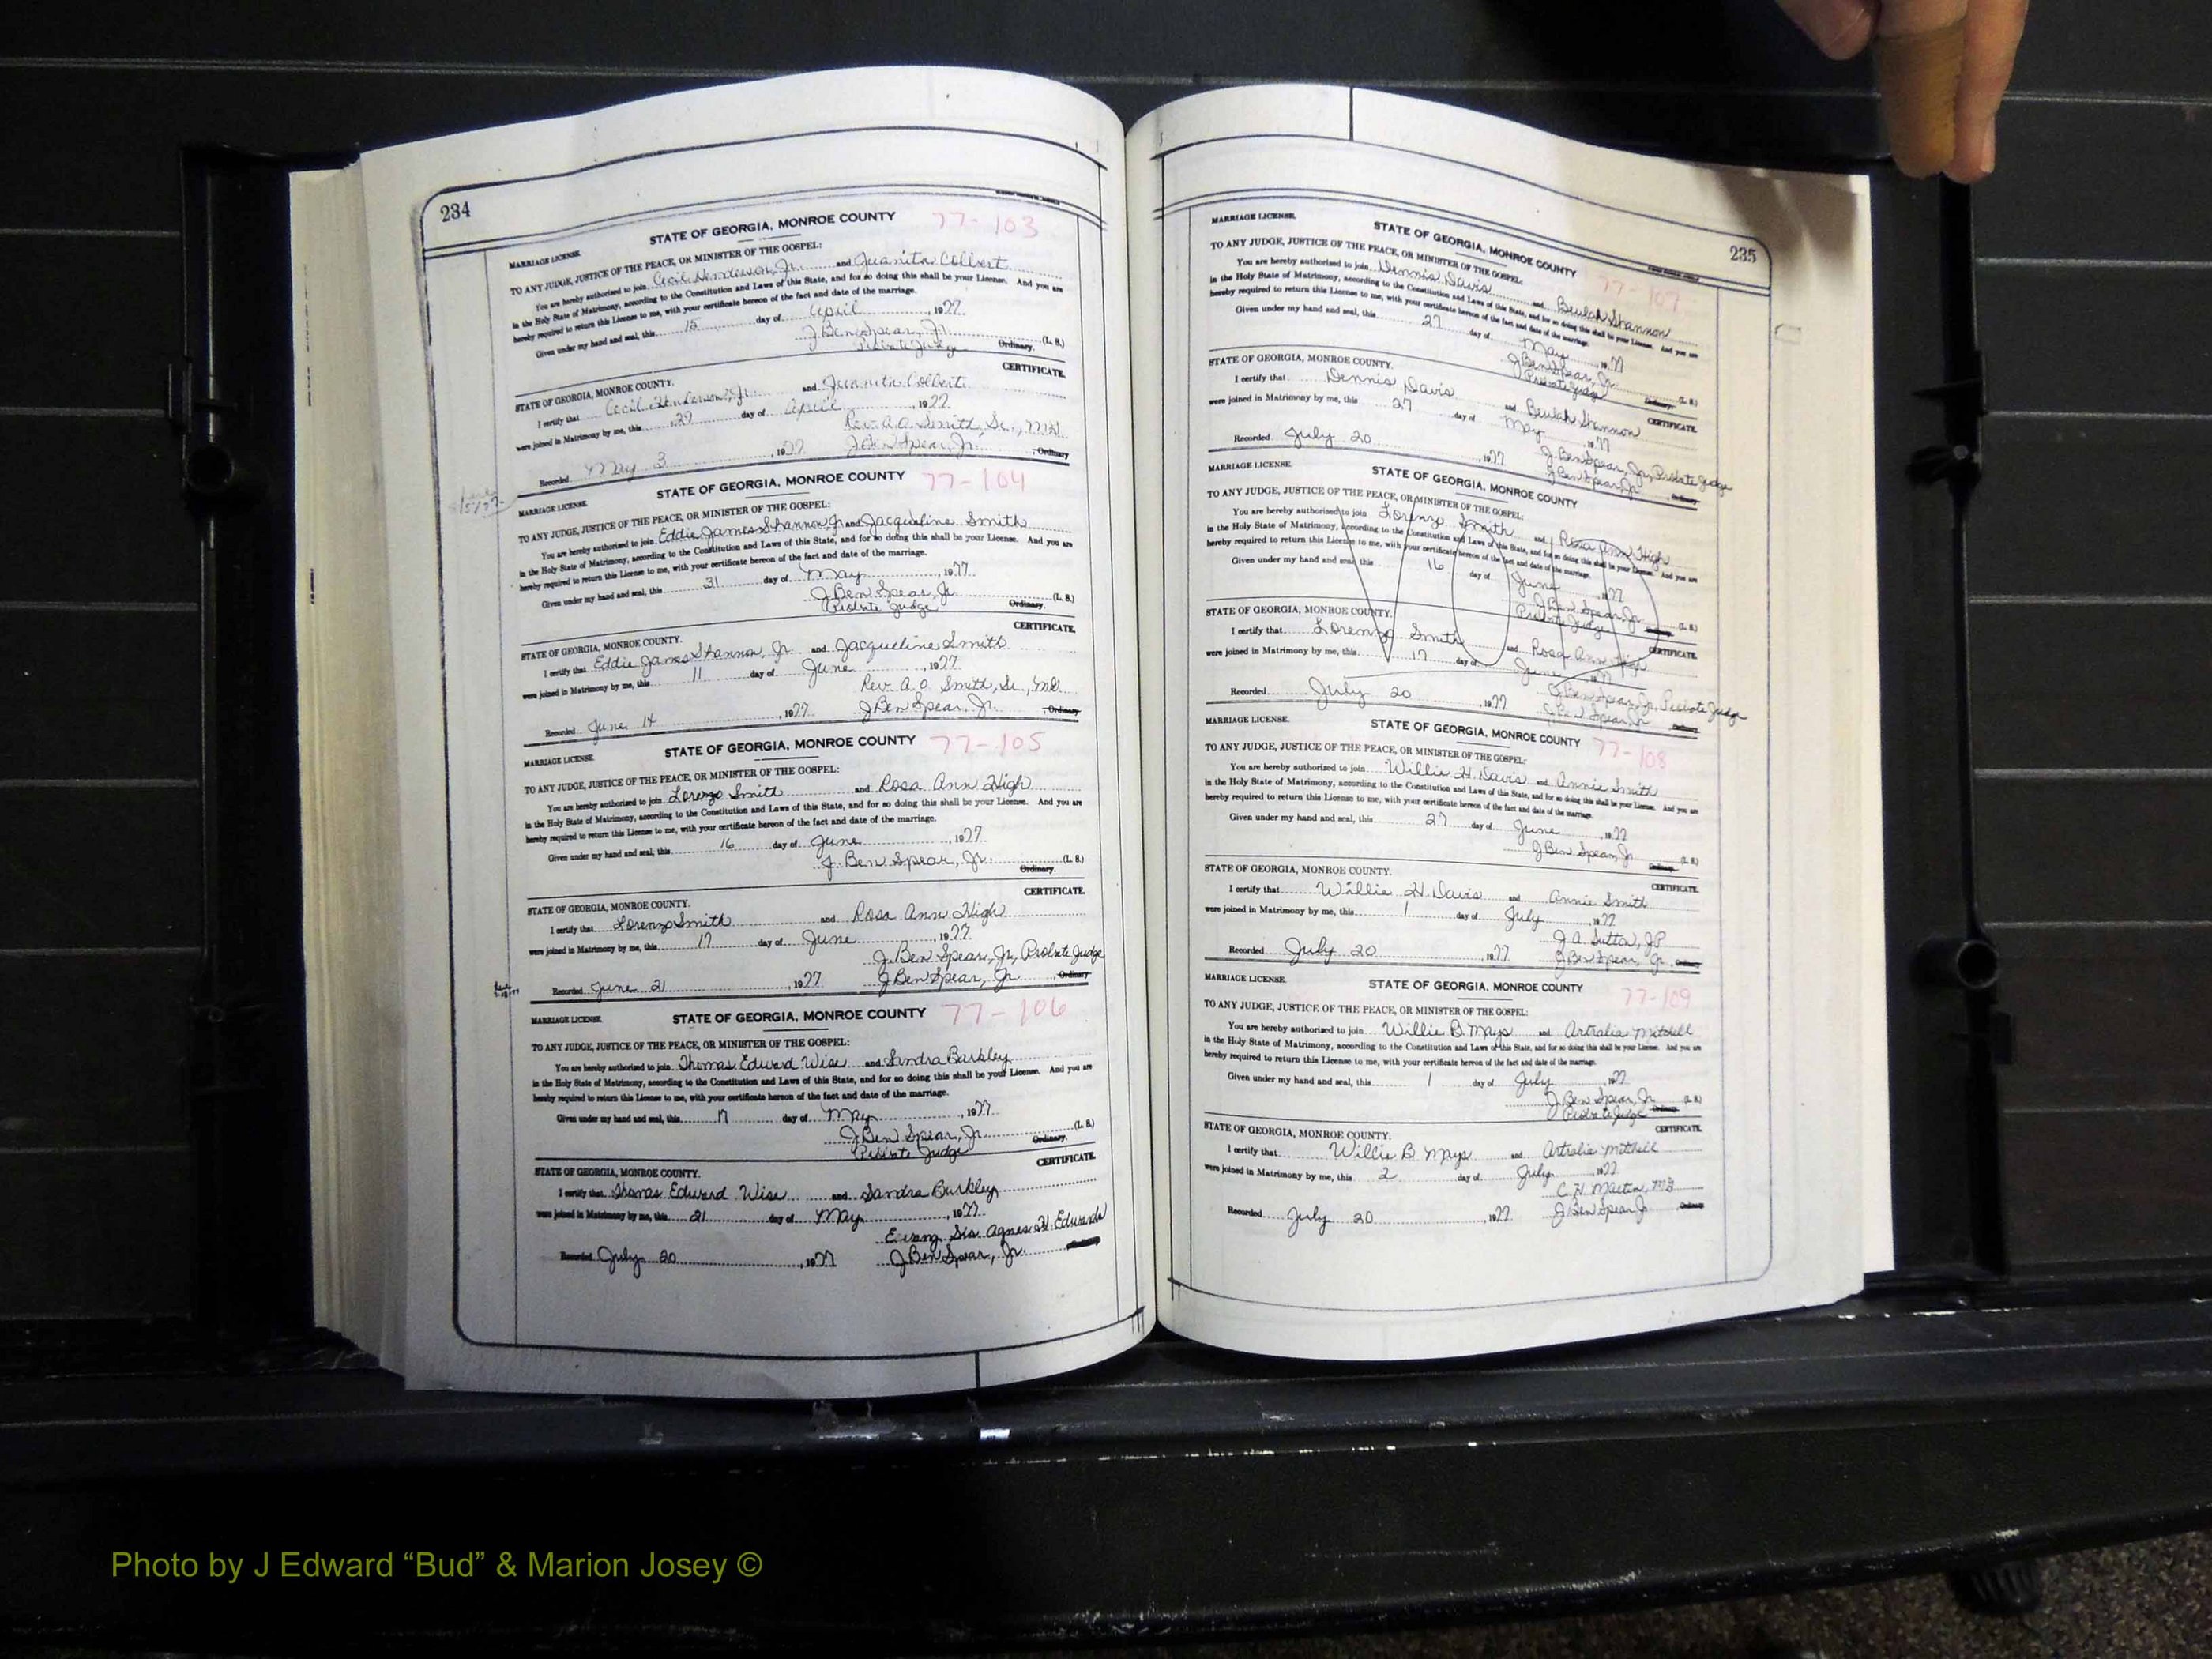 234
STATE OF GEORGIA, MONROE COUNTY 77-103
MARRIAGE LICENSE.
TO ANY JUDGE, JUSTICE OF THE PEACE, OR MINISTER OF THE GOSPEL:
You are hereby authorized to join Cecil Henderson, Jr. and Juanita Colbert
in the Holy State of Matrimony, according to the Constitution and Laws of this State, and for so doing this shall be your License. And you are
hereby required to return this License to me, with your certificate hereon of the fact and date of the marriage.
Given under my hand and seal, this 15 day of April, 1977
J Ben Spear, Jr. (L. S.)
Probate Judge Ordinary.
CERTIFICATE.
STATE OF GEORGIA, MONROE COUNTY.
I certify that Cecil Henderson, Jr. and Juanita Colbert
were joined in Matrimony by me, this 27 day of April, 1977
Rev. A. O. Smith, Sr., MG
Recorded May 3, 1977 J Ben Spear, Jr., Ordinary
STATE OF GEORGIA, MONROE COUNTY 77-104
MARRIAGE LICENSE.
TO ANY JUDGE, JUSTICE OF THE PEACE, OR MINISTER OF THE GOSPEL:
You are hereby authorized to join Eddie James Shannon, Jr and Jacqueline Smith
in the Holy State of Matrimony, according to the Constitution and Laws of this State, and for so doing this shall be your License. And you are
hereby required to return this License to me, with your certificate hereon of the fact and date of the marriage.
Given under my hand and seal, this 31 day of May, 1977
J Ben Spear, Jr. (L. S.)
Probate Judge Ordinary.
CERTIFICATE.
STATE OF GEORGIA, MONROE COUNTY.
I certify that Eddie James Shannon, Jr. and Jacqueline Smith
were joined in Matrimony by me, this 11 day of June, 1977
Rev. A. O. Smith, Sr., MG
Recorded June 14, 1977 J Ben Spear, Jr., Ordinary
STATE OF GEORGIA, MONROE COUNTY 77-105
MARRIAGE LICENSE.
TO ANY JUDGE, JUSTICE OF THE PEACE, OR MINISTER OF THE GOSPEL:
You are hereby authorized to join Lorenzo Smith and Rosa Ann High
in the Holy State of Matrimony, according to the Constitution and Laws of this State, and for so doing this shall be your License. And you are
hereby required to return this License to me, with your certificate hereon of the fact and date of the marriage.
Given under my hand and seal, this 16 day of June, 1977
J. Ben Spear, Jr. (L. S.)
Ordinary.
CERTIFICATE.
STATE OF GEORGIA, MONROE COUNTY.
I certify that Lorenzo Smith and Rosa Ann High
were joined in Matrimony by me, this 17 day of June, 1977
J. Ben Spear, Jr, Probate Judge
Recorded June 21, 1977 J Ben Spear, Jr, Ordinary
STATE OF GEORGIA, MONROE COUNTY 77-106
MARRIAGE LICENSE.
TO ANY JUDGE, JUSTICE OF THE PEACE, OR MINISTER OF THE GOSPEL:
You are hereby authorized to join Thomas Edward Wise and Sandra Barkley
in the Holy State of Matrimony, according to the Constitution and Laws of this State, and for so doing this shall be your License. And you are
hereby required to return this License to me, with your certificate hereon of the fact and date of the marriage.
Given under my hand and seal, this 17 day of May, 1977
J Ben Spear, Jr. (L. S.)
Probate Judge Ordinary.
CERTIFICATE.
STATE OF GEORGIA, MONROE COUNTY.
I certify that Thomas Edward Wise and Sandra Barkley
were joined in Matrimony by me, this 21 day of May, 1977
Evang. Sis Agnes H. Edwards
Recorded July 20, 1977 J Ben Spear, Jr.
235
STATE OF GEORGIA, MONROE COUNTY 77-107
MARRIAGE LICENSE.
TO ANY JUDGE, JUSTICE OF THE PEACE, OR MINISTER OF THE GOSPEL:
You are hereby authorized to join Dennis Davis and Beulah Shannon
in the Holy State of Matrimony, according to the Constitution and Laws of this State, and for so doing this shall be your License. And you are
hereby required to return this License to me, with your certificate hereon of the fact and date of the marriage.
Given under my hand and seal, this 27 day of May, 1977
J Ben Spear, Jr. (L. S.)
Probate Judge Ordinary.
CERTIFICATE.
STATE OF GEORGIA, MONROE COUNTY.
I certify that Dennis Davis and Beulah Shannon
were joined in Matrimony by me, this 27 day of May, 1977
J. Ben Spear, Jr, Probate Judge
Recorded July 20, 1977 J Ben Spear, Jr Ordinary
STATE OF GEORGIA, MONROE COUNTY
MARRIAGE LICENSE.
TO ANY JUDGE, JUSTICE OF THE PEACE, OR MINISTER OF THE GOSPEL:
You are hereby authorized to join Lorenzo Smith and Rosa Ann High
in the Holy State of Matrimony, according to the Constitution and Laws of this State, and for so doing this shall be your License. And you are
hereby required to return this License to me, with your certificate hereon of the fact and date of the marriage.
Given under my hand and seal, this 16 day of June, 1977
J Ben Spear, Jr. (L. S.)
Probate Judge Ordinary.
VOID
CERTIFICATE.
STATE OF GEORGIA, MONROE COUNTY.
I certify that Lorenzo Smith and Rosa Ann High
were joined in Matrimony by me, this 17 day of June, 1977
J Ben Spear, Jr, Probate Judge
Recorded July 20, 1977 J Ben Spear, Jr Ordinary
STATE OF GEORGIA, MONROE COUNTY 77-108
MARRIAGE LICENSE.
TO ANY JUDGE, JUSTICE OF THE PEACE, OR MINISTER OF THE GOSPEL:
You are hereby authorized to join Willie H. Davis and Annie Smith
in the Holy State of Matrimony, according to the Constitution and Laws of this State, and for so doing this shall be your License. And you are
hereby required to return this License to me, with your certificate hereon of the fact and date of the marriage.
Given under my hand and seal, this 27 day of June, 1977
J Ben Spear, Jr (L. S.)
Ordinary.
CERTIFICATE.
STATE OF GEORGIA, MONROE COUNTY.
I certify that Willie H. Davis and Annie Smith
were joined in Matrimony by me, this 1 day of July, 1977
J A Sutton, JP
Recorded July 20, 1977 J Ben Spear, Jr. Ordinary
STATE OF GEORGIA, MONROE COUNTY 77-109
MARRIAGE LICENSE.
TO ANY JUDGE, JUSTICE OF THE PEACE, OR MINISTER OF THE GOSPEL:
You are hereby authorized to join Willie B Mays and Artralia Mitchell
in the Holy State of Matrimony, according to the Constitution and Laws of this State, and for so doing this shall be your License. And you are
hereby required to return this License to me, with your certificate hereon of the fact and date of the marriage.
Given under my hand and seal, this 1 day of July, 1977
J Ben Spear, Jr (L. S.)
Probate Judge Ordinary.
CERTIFICATE.
STATE OF GEORGIA, MONROE COUNTY.
I certify that Willie B Mays and Artralia Mitchell
were joined in Matrimony by me, this 2 day of July, 1977
C. H. Martin, MG
Recorded July 20, 1977 J Ben Spear Jr Ordinary
Photo by J Edward “Bud” & Marion Josey ©